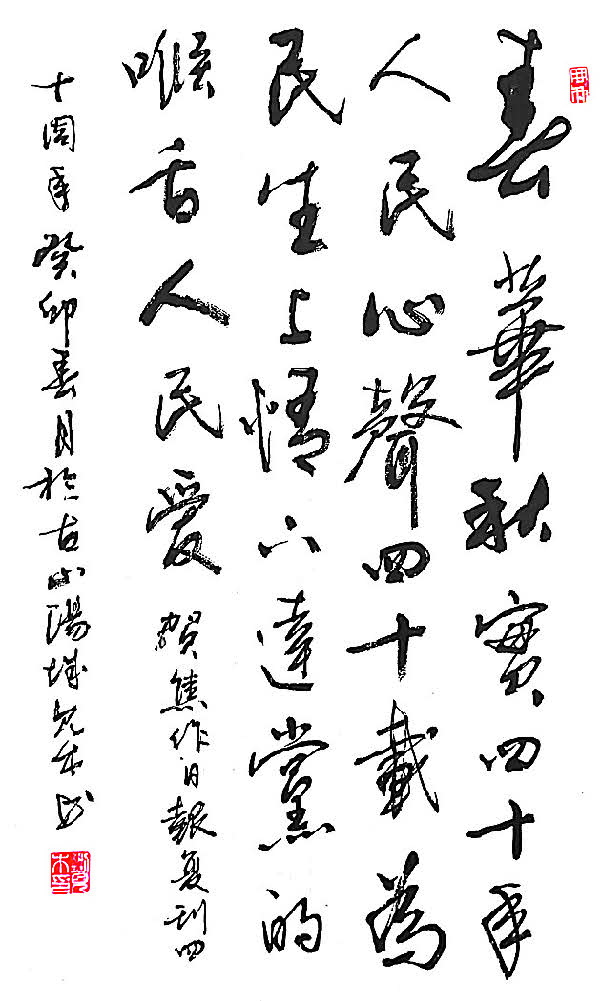 春華秋實四十年
人民心聲四十載為
民生上情下達黨的
喉舌人民愛 賀焦作日報复刊四
十周年癸卯春月於古山陽城